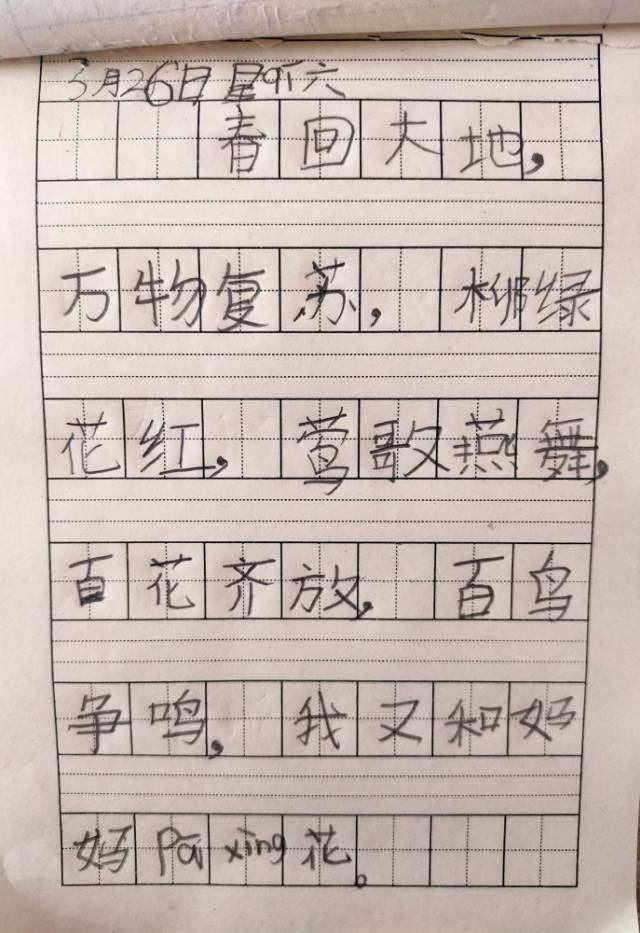 3月26日 星期六
春回大地,
万物复苏, 柳绿
花红, 莺歌燕舞,
百花齐放, 百鸟
争鸣, 我又和妈
妈pāi xìng花。